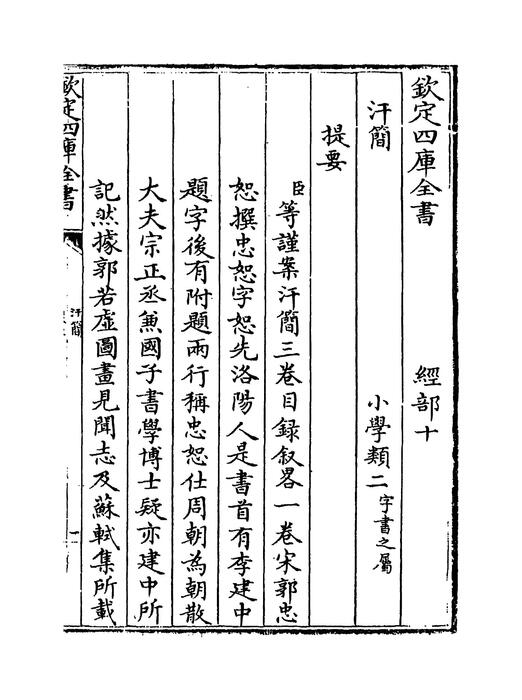 欽定四庫全書　經部十
汗簡　小學類二字書之屬
提要
臣等謹案汗簡三卷目録叙畧一卷宋郭忠
恕撰忠恕字恕先洛陽人是書首有李建中
題字後有附題兩行稱忠恕仕周朝為朝散
大夫宗正丞兼國子書學博士疑亦建中所
記然據郭若虚圖畫見聞志及蘇軾集所載
欽定四庫全書
汗簡